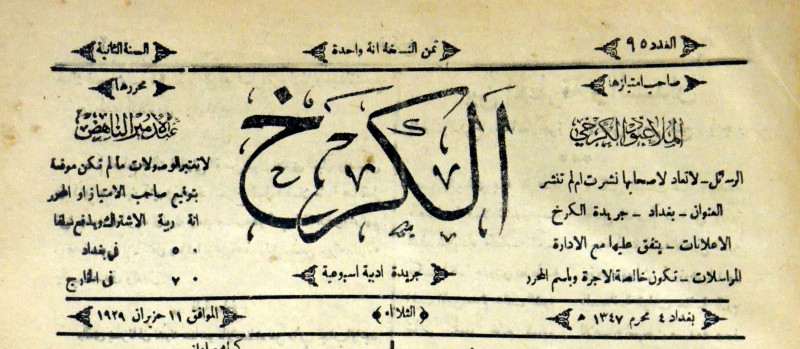 العدد ٩٥
ثمن النسخة انة واحدة
السنة الثانية
صاحب امتيازها
محررها
الملا عبود الكرخي
الكرخ
عبد الامير الناهض
الرسائل ــ لا تعاد لاصحابها نشرت ام لم تنشر
العنوان ــ بغداد ــ جريدة الكرخ
الاعلانات ــ يتفق عليها مع الادارة
المراسلات ــ تكون خالصة الاجرة وباسم المحرر
جريدة ادبية اسبوعية
لا تعتبر الوصولات ما لم تكن موقعة
بتوقيع صاحب الامتياز او المحرر
انة ربية الاشتراك ويدفع سلفا
٠ ٥ في بغداد
٠ ٧ في الخارج
بغداد ٤ محرم ١٣٤٧ هـ
الثلاثاء
الموافق ١١ حزيران ١٩٢٩